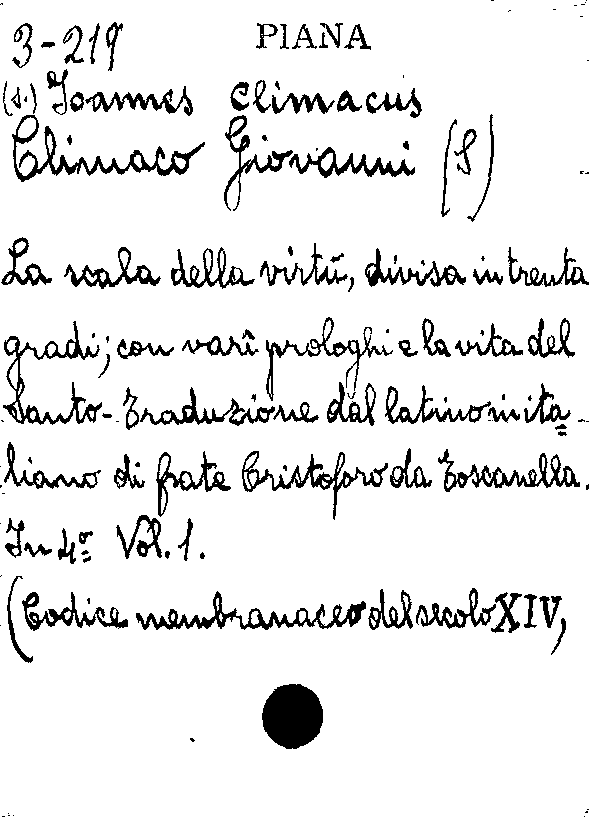 3-219 PIANA
(S.) Ioannes Climacus
Climaco Giovanni (S)
La scala della virtù, divisa in trenta
gradi; con varî prologhi e la vita del
Santo - Traduzione dal latino in ita=
liano di frate Cristoforo da Toscanella.
In 4º Vol. 1.
(Codice membranaceo del secolo XIV,